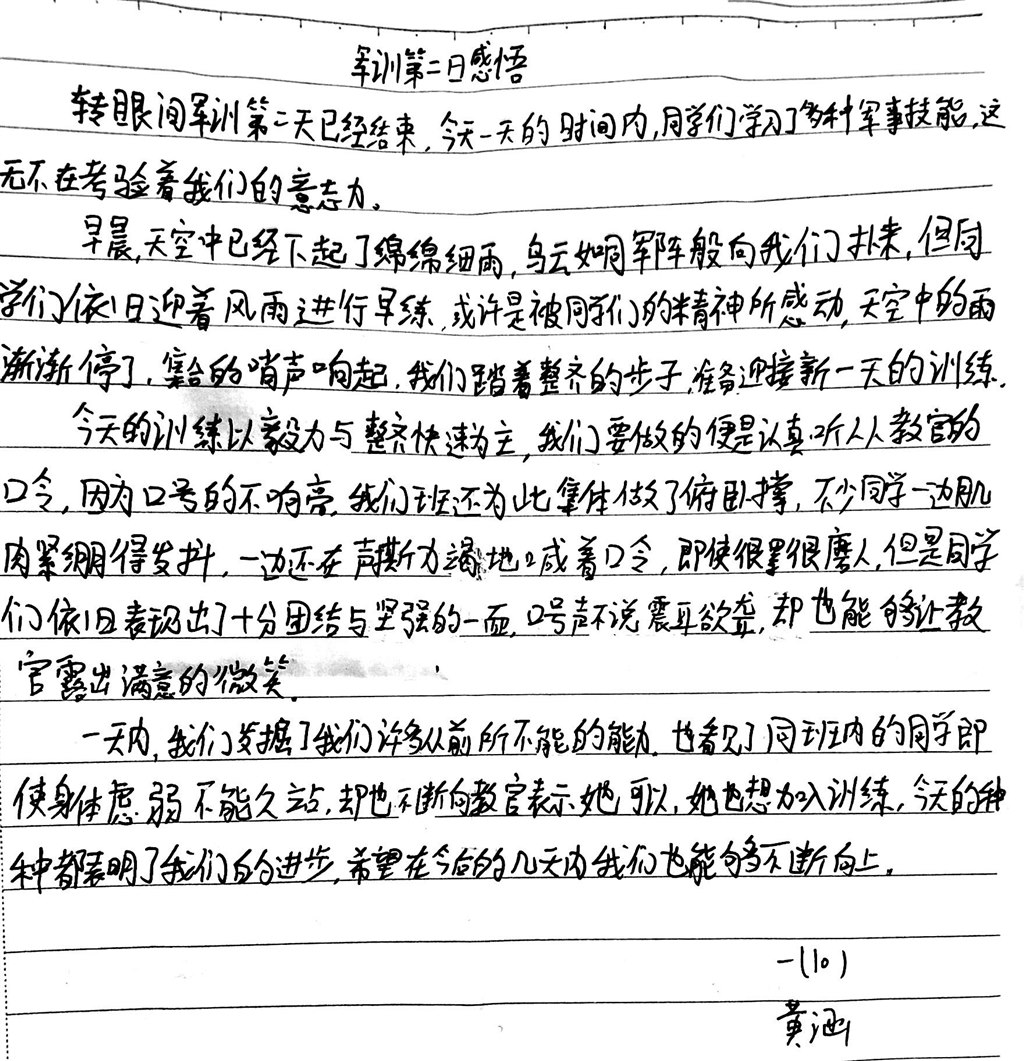 军训第二日感悟
转眼间军训第二天已经结束,今天一天的时间内,同学们学习了多种军事技能,这
无不在考验着我们的意志力。
早晨,天空中已经下起了绵绵细雨,乌云如同军阵般向我们扑来,但同
学们依旧迎着风雨进行早练,或许是被同学们的精神所感动,天空中的雨
渐渐停了,集合的哨声响起,我们踏着整齐的步子,准备迎接新一天的训练.
今天的训练以毅力与整齐快速为主,我们要做的便是认真听从教官的
口令,因为口号的不响亮,我们班还为此集体做了俯卧撑,不少同学一边肌
肉紧绷得发抖,一边还在声斯力竭地喊着口令,即使很累很磨人,但是同学
们依旧表现出了十分团结与坚强的一面,口号声不说震耳欲聋,却也能够让教
官露出满意的微笑.
一天内,我们发掘了我们许多从前所不能的能力.也看见了同班内的同学即
使身体虚弱不能久站,却也不断向教官表示她可以,她也想加入训练,今天的种
种都表明了我们的进步,希望在今后的几天内我们也能够不断向上.
一(10)
黄涵